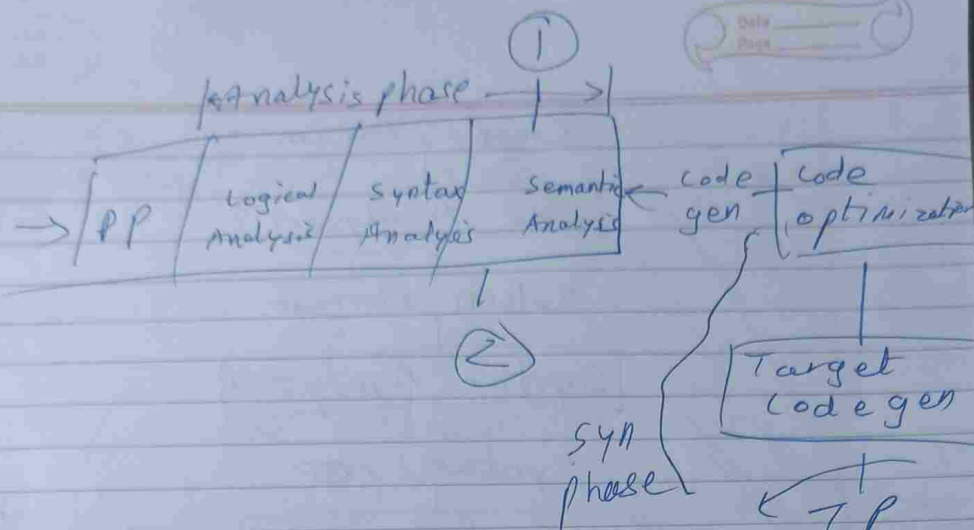 ①
Date
Page
Analysis phase
PP
Logical
Analysis
Syntax
Analysis
Semantic
Analysis
code
gen
Code
optimization
②
Target
Code gen
Syn
phase
TP